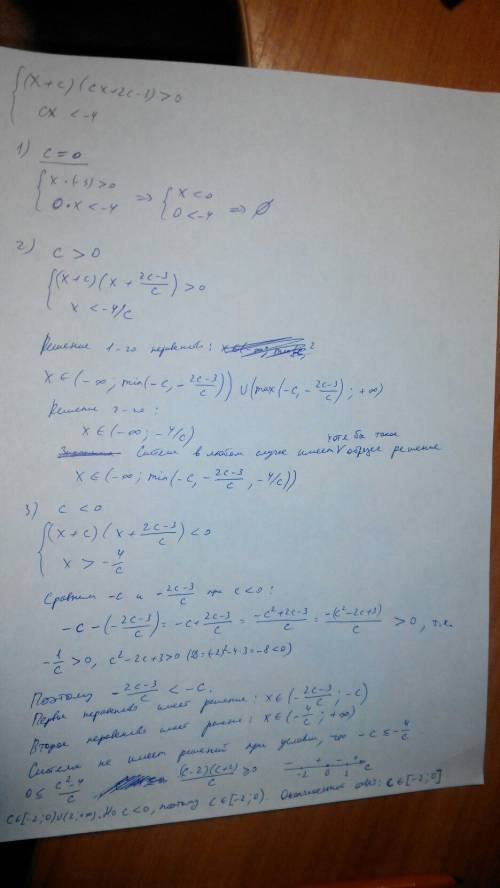 { (x+c)(cx+2c-3)>0
cx < -4
1) c=0
{ x·(-3)>0 => { x<0
0·x<-4 0<-4 => ∅
2) c>0
{ (x+c)(x+\frac{2c-3}{c})>0
x < -4/c
Решение 1-го неравенства:
x∈(-∞; min(-c, -\frac{2c-3}{c})) ∪ (max(-c, -\frac{2c-3}{c}); +∞)
Решение 2-го:
x∈(-∞; -4/c)
хотя бы такое
Система в любом случае имеет V общее решение
x∈(-∞; min(-c, -\frac{2c-3}{c}, -4/c))
3) c<0
{ (x+c)(x+\frac{2c-3}{c})<0
x > -\frac{4}{c}
Сравним -c и -\frac{2c-3}{c} при c<0:
-c-(-\frac{2c-3}{c}) = -c+\frac{2c-3}{c} = \frac{-c²+2c-3}{c} = \frac{-(c²-2c+3)}{c} > 0, т.к.
-\frac{1}{c}>0, c²-2c+3>0 (D=(-2)²-4·3=-8<0)
Поэтому -\frac{2c-3}{c} < -c.
Первое неравенство имеет решение: x∈(-\frac{2c-3}{c}; -c)
Второе неравенство имеет решение: x∈(-\frac{4}{c}; +∞)
Система не имеет решений при условии, что -c ≤ -\frac{4}{c}
0 ≤ \frac{c²-4}{c} \frac{(c-2)(c+2)}{c} ≥ 0 - + - + -2 0 2 c
c∈[-2;0)∪[2;+∞). Но c<0, поэтому c∈[-2;0). Окончательный ответ: c∈[-2;0]